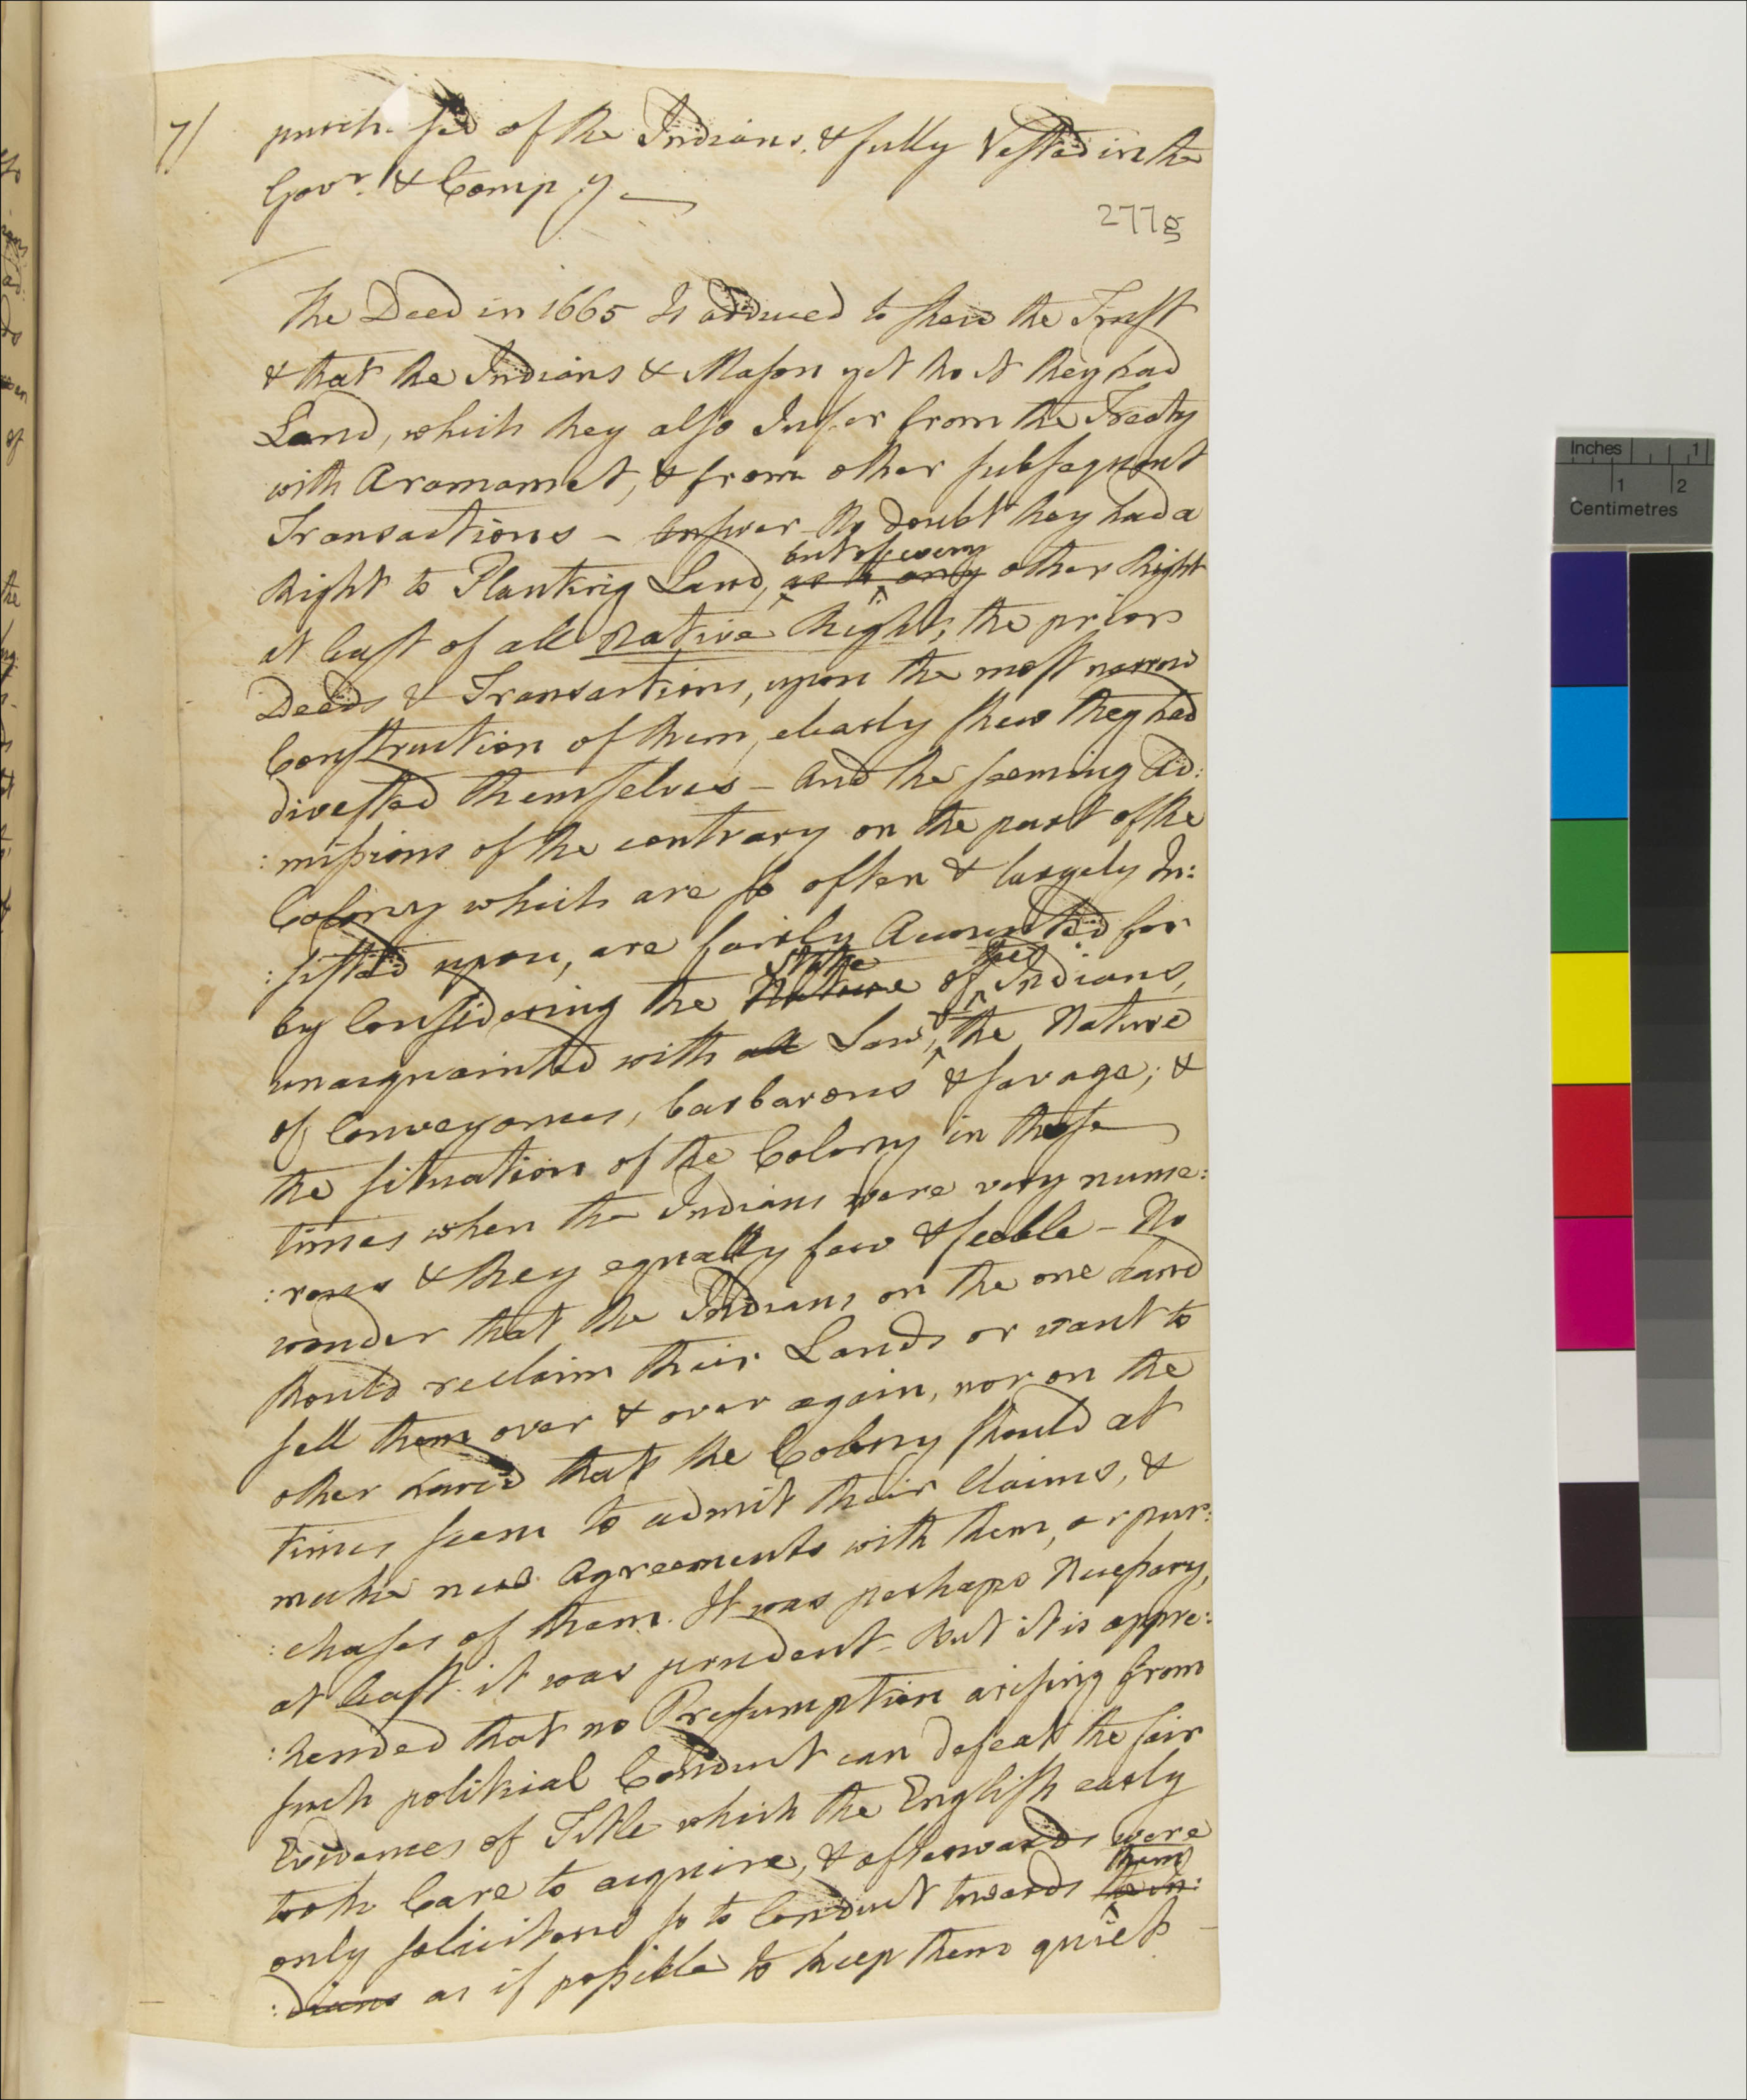 7/
purchased of the Indians, & fully Vested in the
Govr. & Compy —
277g
The Deed in 1665 Is adduced to shew the Trust
& that the Indians & Mason yet tho't they had
Land, which they also Infer from the Treaty
with Aramamet, & from other subsequent
Transactions — Answer — No doubt they had a
but of every
Right to Planting Land, as to any other Right
at least of all Native Right, the prior
Deeds & Transactions, upon the most narrow
Construction of them, clearly shew they had
divested themselves — And the seeming Ad:
:missions of the contrary on the part of the
Colony which are so often & largely In:
:sisted upon, are fairly Accounted for
State the
by Considering the Nature of Indians,
unacquainted with all Law, & the Nature
of Conveyances, barbarous & savage; &
the situation of the Colony in those
times when the Indians were very nume:
:rous & they equally few & feeble — No
wonder that the Indians on the one hand
should reclaim their Lands or want to
sell them over & over again, nor on the
other hand that the Colony should at
times seem to admit their Claims, &
make new Agreements with them, or pur:
:chases of them. It was perhaps Necessary,
at least it was prudent — But it is appre:
:hended that no Presumption arising from
such political Conduct can defeat the fair
Evidences of Title which the English early
took Care to acquire, & afterwards were
them
only solicitous so to Conduct towards the In:
:dians as if possible to keep them quiet —
Inches 1
1 2
Centimetres